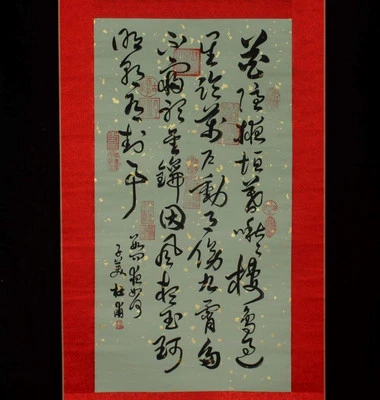 花隱掖垣暮啾啾棲鳥過
星臨萬戶動月傍九霄多
不寢聽金鑰因風想玉珂
明朝有封事
數問夜如何
子美杜甫